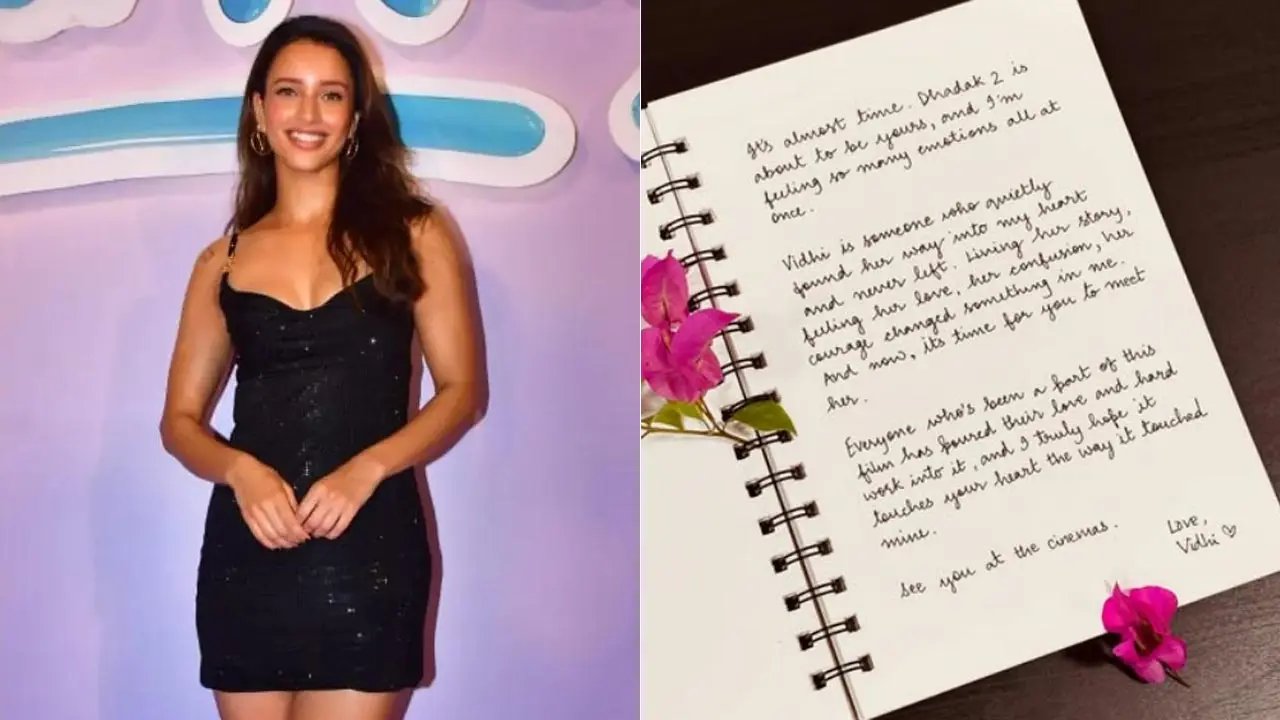 It's almost time. Dhadak 2 is
about to be yours, and I'm
feeling so many emotions all at
once.
Vidhi is someone who quietly
found her way into my heart
and never left. Living her story,
feeling her love, her confusion, her
courage changed something in me.
And now, it's time for you to meet
her.
Everyone who's been a part of this
film has poured their love and hard
work into it, and I truly hope it
touches your heart the way it touched
mine.
See you at the cinemas.
Love,
Vidhi ♡